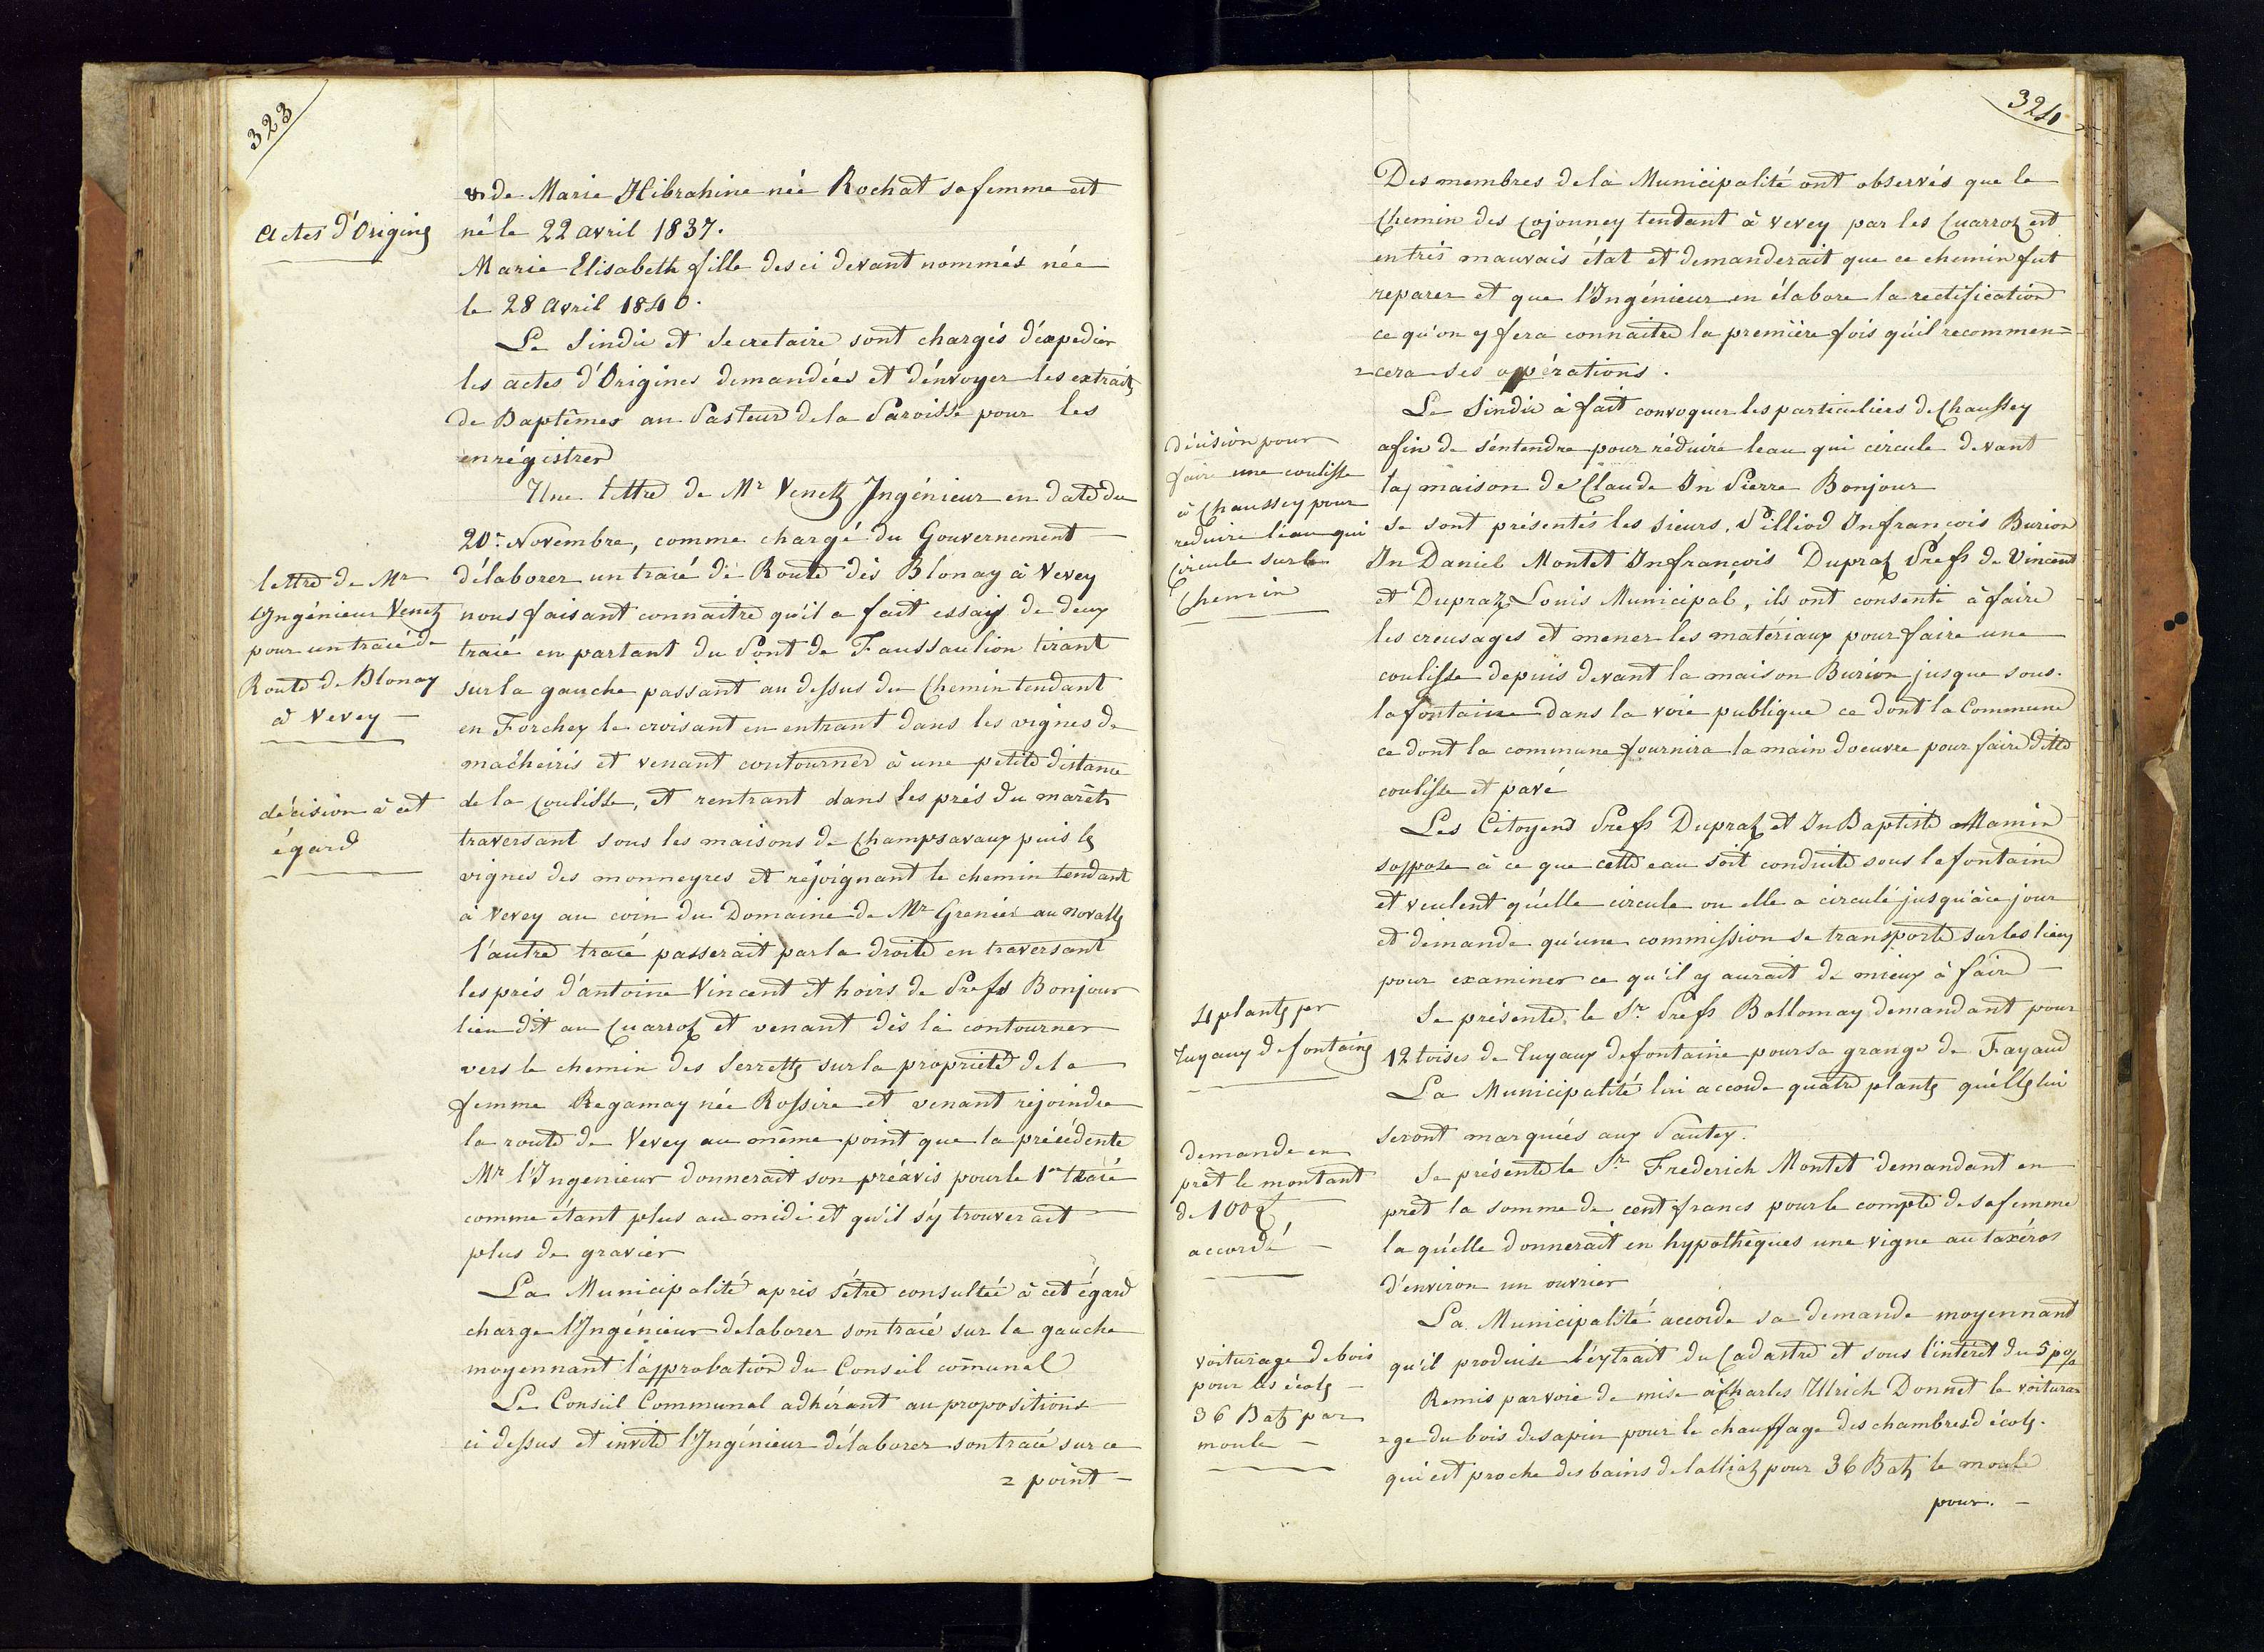 323
Actes d'Origines
& de Marie Hibrahine née Rochat sa femme est
né le 22 avril 1837.
Marie Elisabeth fille des ci devant nommés née
le 28 avril 1840.
Le Sindic et Secretaire sont chargés d'éxpedier
les actes d'Origines demandées et d'énvoyer les extraits
de Baptêmes au Pasteur de la Paroisse pour les
enrégistrer
Une lettre de Mr Venetz Ingénieur en date du
20e Novembre, comme chargé du Gouvernement
lettre de Mr
l'Ingénieur Venetz
pour un tracé de
Route de Blonay
à Vevey
d'élaborer un tracé de Route dès Blonay à Vevey
nous faisant connaitre qu'il a fait essais de deux
tracé en partant du Pont de Faussaulion tirant
sur la gauche passant au dessus du Chemin tendant
en Forchey le croisant en entrant dans les vignes de
machéiris et venant contourner à une petite distance
décision à cet
égard
de la Coulisse, et rentrant dans les prés du marêts
traversant sous les maisons de Champsavaux puis les
vignes des monneyres et rejoignant le chemin tendant
à Vevey au coin du Domaine de Mr Grenier au novalles
l'autre tracé passerait par la droite en traversant
les prés d'antoine Vincent et hoirs de Prefs Bonjour
lieu dit au Cuarroz et venant dès là contourner
vers le chemin des Serrettes sur la propriété de la
femme Regamay née Rossire et venant rejoindre
la route de Vevey au même point que la précédente
Mr l'Ingenieur donnerait son préavis pour le 1er tracé
comme étant plus au midi et qu'il s'y trouverait
plus de gravier
La Municipalité apris s'être consultée à cet égard
charge l'Ingénieur delaborer son tracé sur la gauche
moyennant l'approbation du Conseil comunal
Le Conseil Communal adhérant au propositions
ci dessus et invite l'Ingénieur d'élaborer son tracé sur ce
= point
324
Des membres de la Municipalité ont observés que le
Chemin des Cojonney tendant à Vevey par les Cuarroz est
en très mauvais état et demanderait que ce chemin fut
reparer et que l'Ingénieur en élabore la rectification
ce qu'on y fera connaitre la première fois qu'il recommen=
=cera ses opérations.
Le Sindic à fait convoquer les particuliers de Chaussey
décision pour
faire une coulisse
à Chaussey pour
reduire l'eau qui
circule sur le
Chemin
afin de s'entendre pour réduire leau qui circule devant
la maison de Claude Jn Pierre Bonjour
se sont présentés les sieurs, Pilliod Jnfrançois Burion
Jn Daniel Montet Jnfrançois Dupraz Prefs de Vincent
et Dupraz Louis Municipal, ils ont consenti à faire
les creusages et mener les matériaux pour faire une
coulisse depuis devant la maison Burion jusque sous
la fontaine dans la voie publique ce dont la Commune
ce dont la commune fournira la main doeuvre pour faire dite
coulisse et pavé
Les Citoyens Prefs Dupraz et Jn Baptiste Mamin
soppose à ce que cette eau soit conduite sous la fontaine
et veulent qu'elle circule ou elle a circulé jusqu'à ce jour
et demande qu'une commission se transporte sur les lieux
pour examiner ce qu'il y aurait de mieux à faire
4 plantes pr
Tuyaux de fontaine
Se présente, le Sr Prefs Bollomay demandant pour
12 toises de Tuyaux de fontaine pour sa grange de Fayaud
La Municipalité lui accorde quatre plantes qu'elles lui
seront marquées aux Pautex.
demande en
prêt le montant
de 100 f
accordé
Se présente le Sr Frederich Montet demandant en
prêt la somme de cent francs pour le compte de sa femme
la qu'elle donnerait en hypothèques une vigne au taxéros
d'environ un ouvrier
La Municipalité accorde sa demande moyennant
qu'il produise l'extrait du Cadastre et sous l'intéret du 5 p%
voiturage de bois
pour les écoles
36 Batz par
moule
Remis par voie de mise à Charles Ulrich Donnet le voitura=
=ge du bois de sapin pour le chauffage des chambres d'écoles
qui est proche des bains de lalliaz pour 36 Batz le moule
pour.